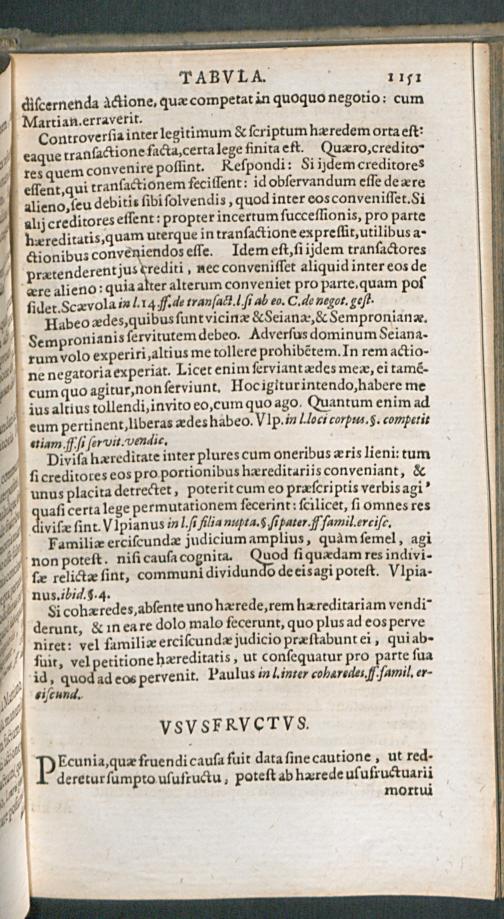 TABVLA. 1151
discernenda àctione, quæ competat in quoquo negotio: cum
Martian. erraverit.
Controversia inter legitimum & scriptum hæredem orta est:
eaque transactione facta, certa lege finita est. Quæro, credito-
res quem convenire possint. Respondi: Si ijdem creditores
essent, qui transactionem fecissent: id observandum esse de ære
alieno, seu debitis sibi solvendis, quod inter eos convenisset. Si
alij creditores essent: propter incertum successionis, pro parte
hæreditatis, quam uterque in transactione expressit, utilibus a-
ctionibus conveniendos esse. Idem est, si ijdem transactores
prætenderent jus crediti, nec convenisset aliquid inter eos de
ære alieno: quia alter alterum conveniet pro parte, quam pos
sidet. Scævola in l. 14. ff. de transact. l. si ab eo. C. de negot. gest.
Habeo ædes, quibus sunt vicinæ & Seianæ, & Sempronianæ.
Sempronianis servitutem debeo. Adversus dominum Seiana-
rum volo experiri, altius me tollere prohibētem. In rem actio-
ne negatoria experiat. Licet enim serviant ædes meæ, ei tamē-
cum quo agitur, non serviunt. Hoc igitur intendo, habere me
ius altius tollendi, invito eo, cum quo ago. Quantum enim ad
eum pertinent, liberas ædes habeo. Vlp. in l. loci corpus. §. competit
etiam. ff. si servit. vendic.
Divisa hæreditate inter plures cum oneribus æris lieni: tum
si creditores eos pro portionibus hæreditariis conveniant, &
unus placita detrectet, poterit cum eo præscriptis verbis agi'
quasi certa lege permutationem fecerint: scilicet, si omnes res
divisæ sint. Vlpianus in l. si filia nupta. §. si pater. ff famil. ercisc.
Familiæ erciscundæ judicium amplius, quàm semel, agi
non potest. nisi causa cognita. Quod si quædam res indivi-
sæ relictæ sint, communi dividundo de eis agi potest. Vlpia-
nus. ibid. §. 4.
Si cohæredes, absente uno hærede, rem hæreditariam vendi-
derunt, & in ea re dolo malo fecerunt, quo plus ad eos perve
niret: vel familiæ erciscundæ judicio præstabunt ei, qui ab-
fuit, vel petitione hæreditatis, ut consequatur pro parte sua
id, quod ad eos pervenit. Paulus in l. inter cohæredes. ff. famil. er-
ciscund.
VSVSFRVCTVS.
PEcunia, quæ fruendi causa fuit data sine cautione, ut red-
deretur sumpto usufructu, potest ab hærede usufructuarii
mortui